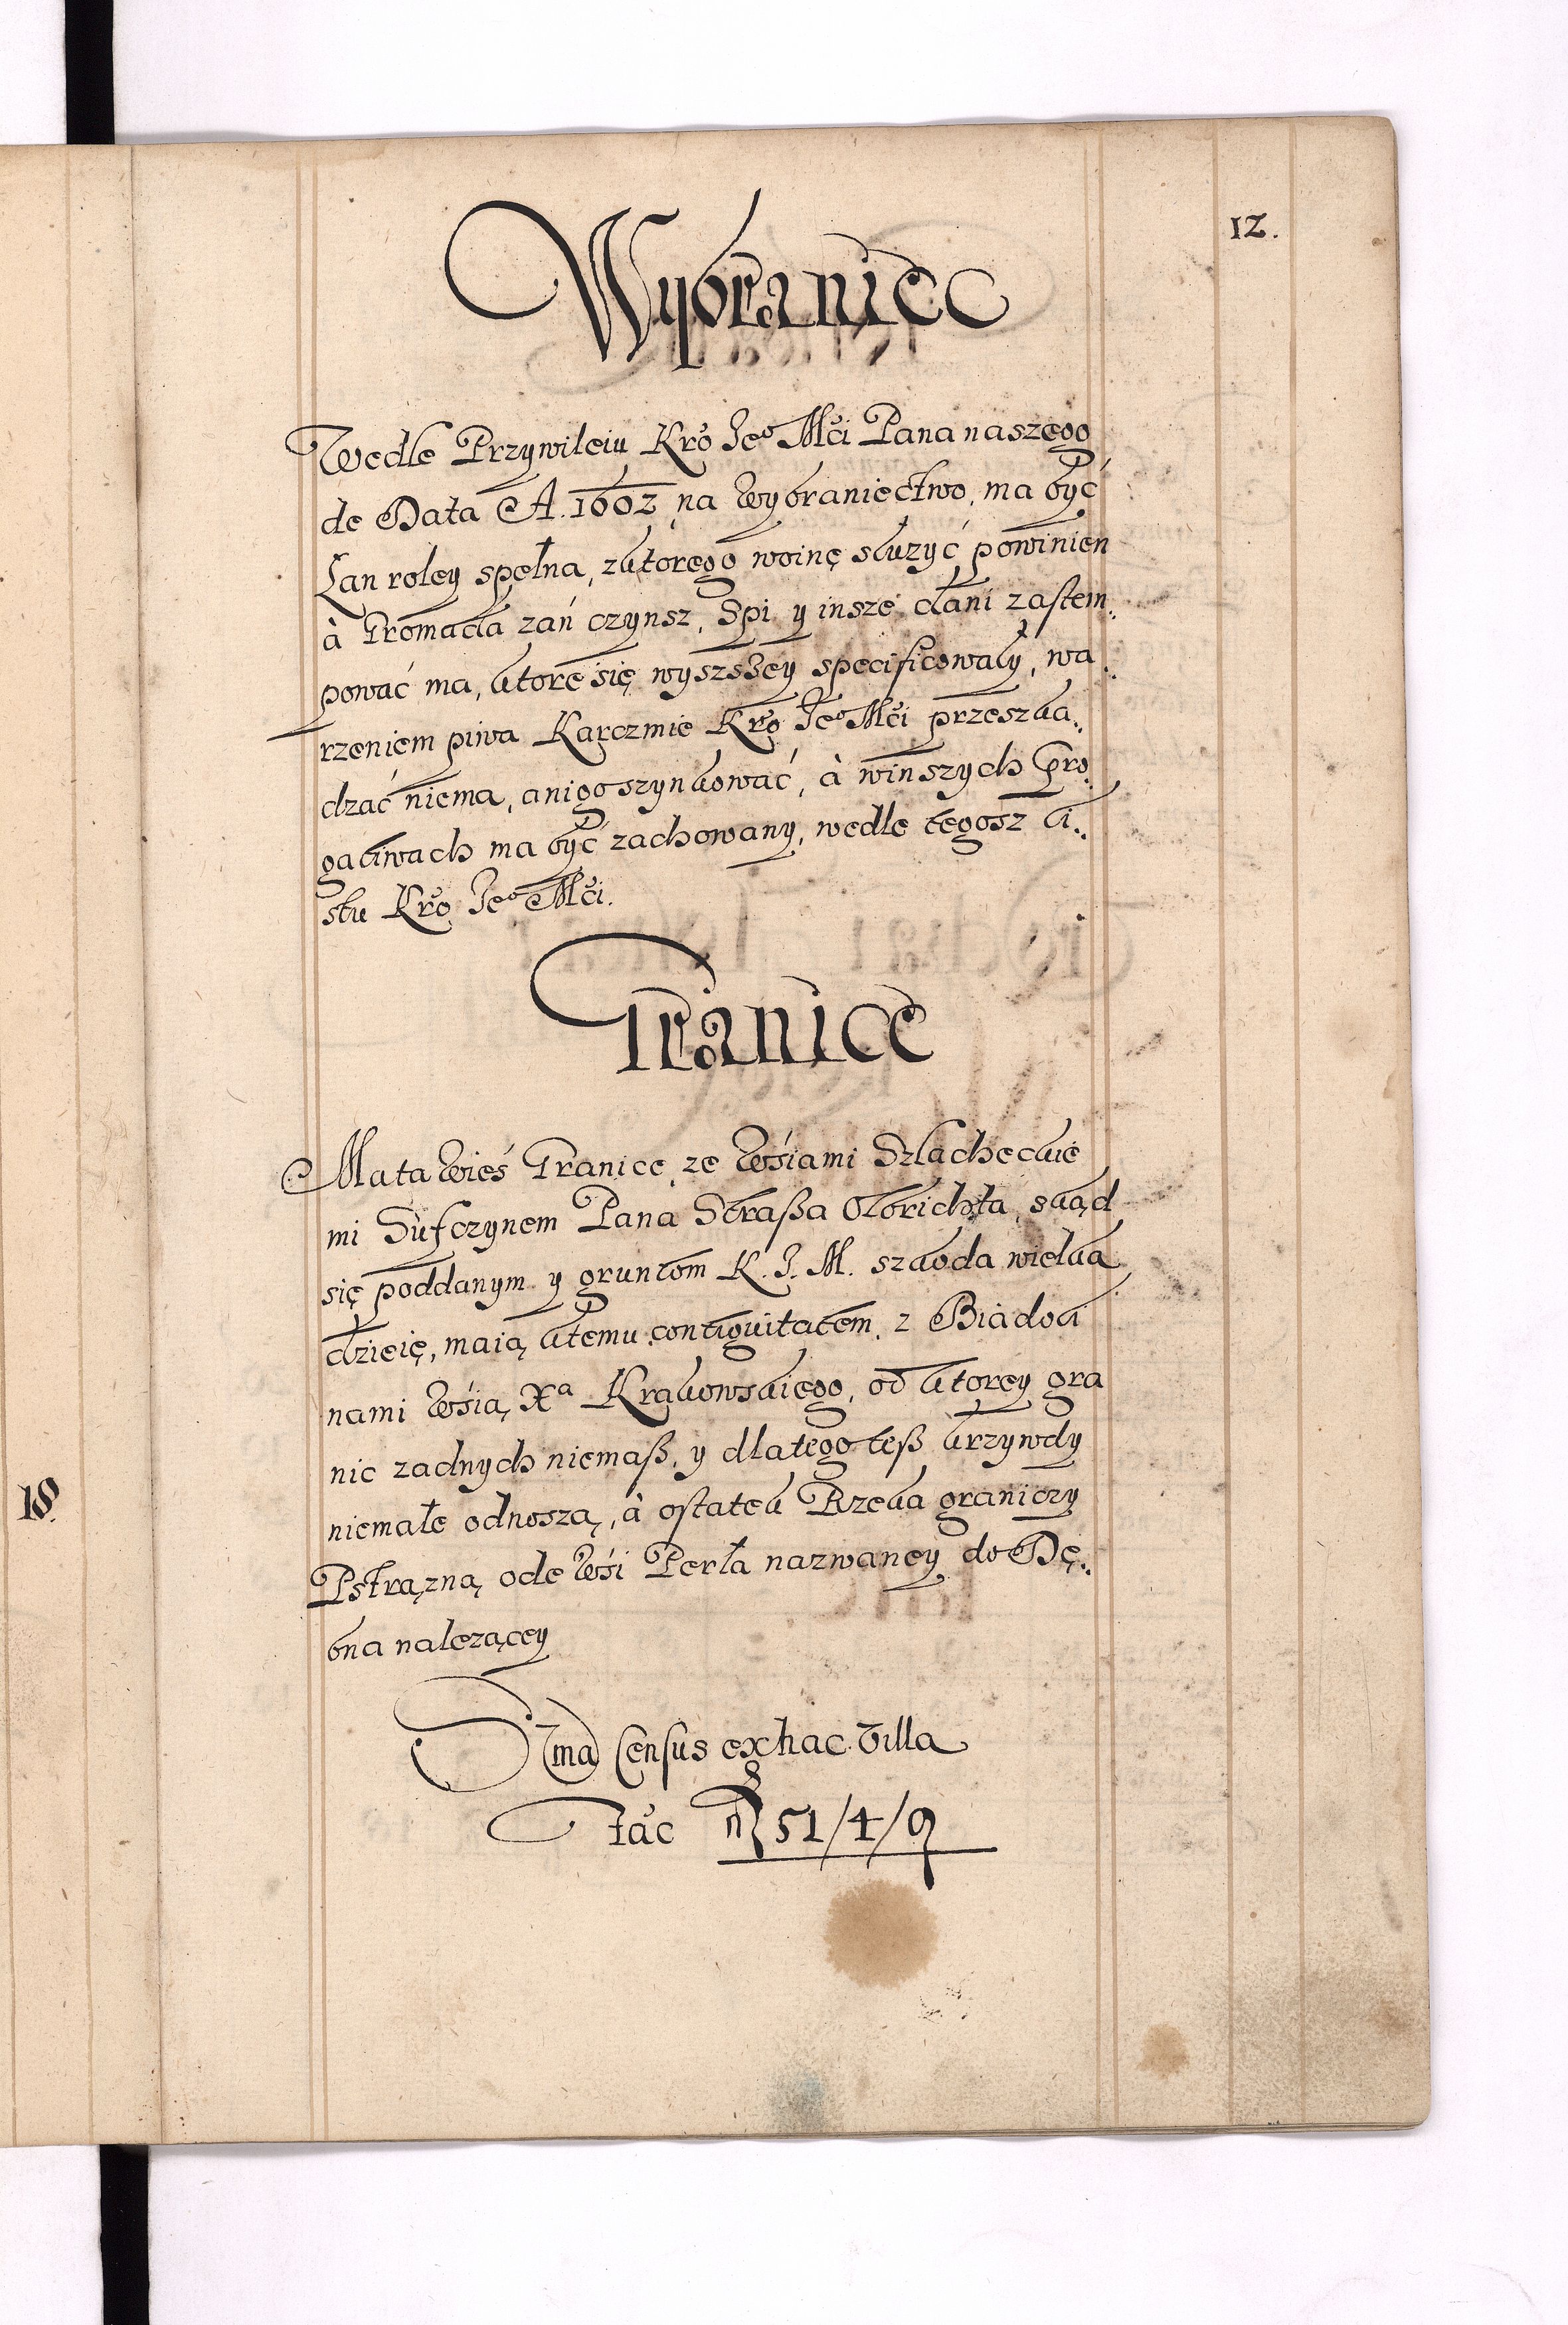 12.
Wybraniec
Wedle Przywileiu Kro Jeo Mci Pana naszego
de Data A. 1602 na wybraniectwo, ma być
Łan roley spełna, zktorego woinę służyć powinien
à Gromada zań czynsz, Spi y insze dani zastem.
pować ma, ktore się wyszszey specificowały, wa.
rzeniem piwa Karczmie Kro Jeo Mci przeszka.
dzać niema, anigo szynkować, à winszych Pro
gatiwach ma być zachowany, wedle tegosz li.
stu Kro Jeo Mci.
Granice
Mata wieś Granice, ze wśiami Szlacheckie
mi Sufczynem Pana Straßa Olbrichta, skąd
się poddanym y gruntom K. J. M. szkoda wielka
dzieię, maią ktemu contiguitatem, z Biadoli
nami wśią Xa Krakowskiego, od ktorey gra
nic zadnych niemaß, y dlategoteß krzywdy
niemałe odnoszą, à ostatek Rzeka graniczy
Pstrązną ode wśi Perła nazwaney do Dę.
bna nalezącey
Sma Census ex hac villa
fac 51/4/9
18.